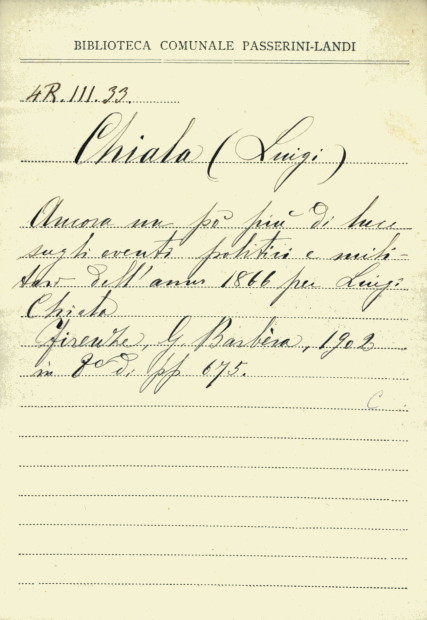 BIBLIOTECA COMUNALE PASSERINI-LANDI
4R.III.33.
Chiala (Luigi)
Ancora un pò più di luce
sugli eventi politici e mili-
tari dell'anno 1866 per Luigi
Chiala
Firenze, G. Barbèra, 1902
in 8° di pp 675.
C